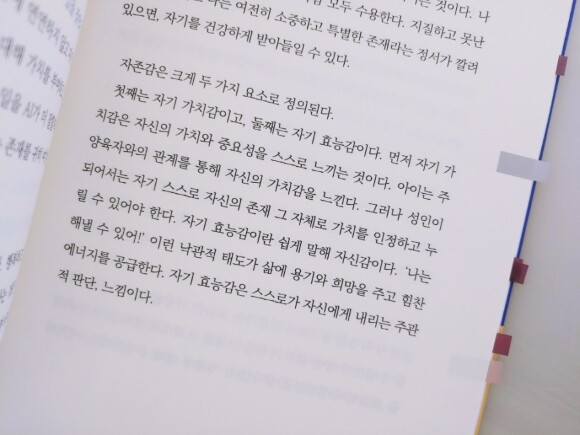 모두 수용한다. 지질하고 못난
여전히 소중하고 특별한 존재라는 정서가 깔려
있으면, 자기를 건강하게 받아들일 수 있다.
자존감은 크게 두 가지 요소로 정의된다.
첫째는 자기 가치감이고, 둘째는 자기 효능감이다. 먼저 자기 가
치감은 자신의 가치와 중요성을 스스로 느끼는 것이다. 아이는 주
양육자와의 관계를 통해 자신의 가치감을 느낀다. 그러나 성인이
되어서는 자기 스스로 자신의 존재 그 자체로 가치를 인정하고 누
릴 수 있어야 한다. 자기 효능감이란 쉽게 말해 자신감이다. '나는
해낼 수 있어!' 이런 낙관적 태도가 삶에 용기와 희망을 주고 힘찬
에너지를 공급한다. 자기 효능감은 스스로가 자신에게 내리는 주관
적 판단, 느낌이다.